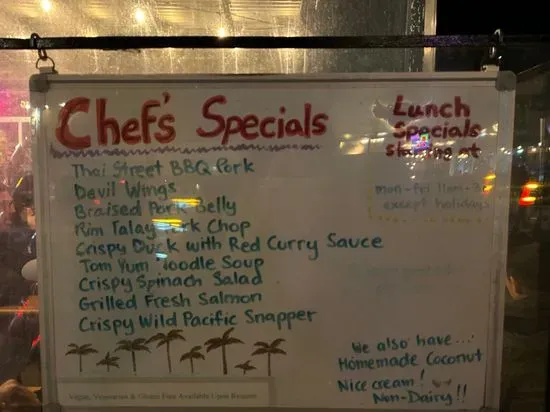 Chef's Specials
Thai Street BBQ Pork
Devil Wings
Braised Pork Belly
Rim Talay Pork Chop
Crispy Duck with Red Curry Sauce
Tom Yum Noodle Soup
Crispy Spinach Salad
Grilled Fresh Salmon
Crispy Wild Pacific Snapper
Vegan, Vegetarian & Gluten Free Available Upon Request
Lunch
Specials
starting at
mon-fri 11am-3
except holidays
We also have...
Homemade Coconut
Nice cream!
Non-Dairy!!